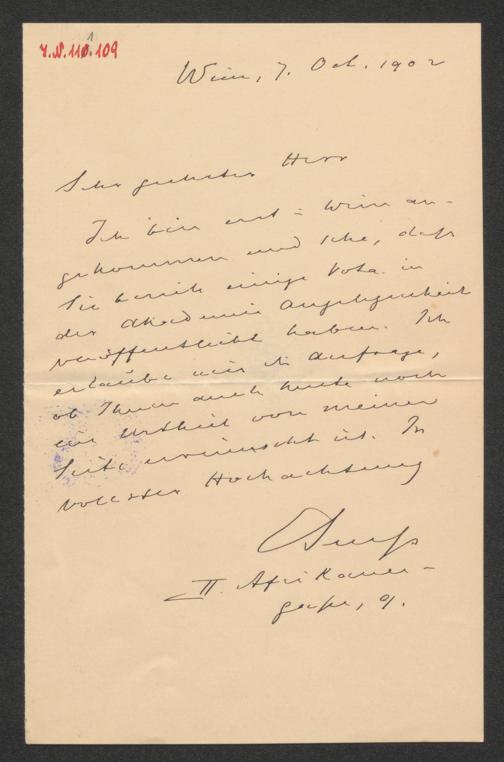 I.N. 110.109
Wien, 7. Oct. 1902
Sehr geehrter Herr
Ich bin erst in Wien an-
gekommen und sehe, daß
Sie bereits einige Vota in
der Akademie Angelegenheit
veröffentlicht haben. Ich
erlaube mir die Anfrage,
ob Ihnen auch heute noch
ein Urtheil von meiner
Seite erwünscht ist. In
vollster Hochachtung
ESueß
II. Afrikaner-
gasse, 9.